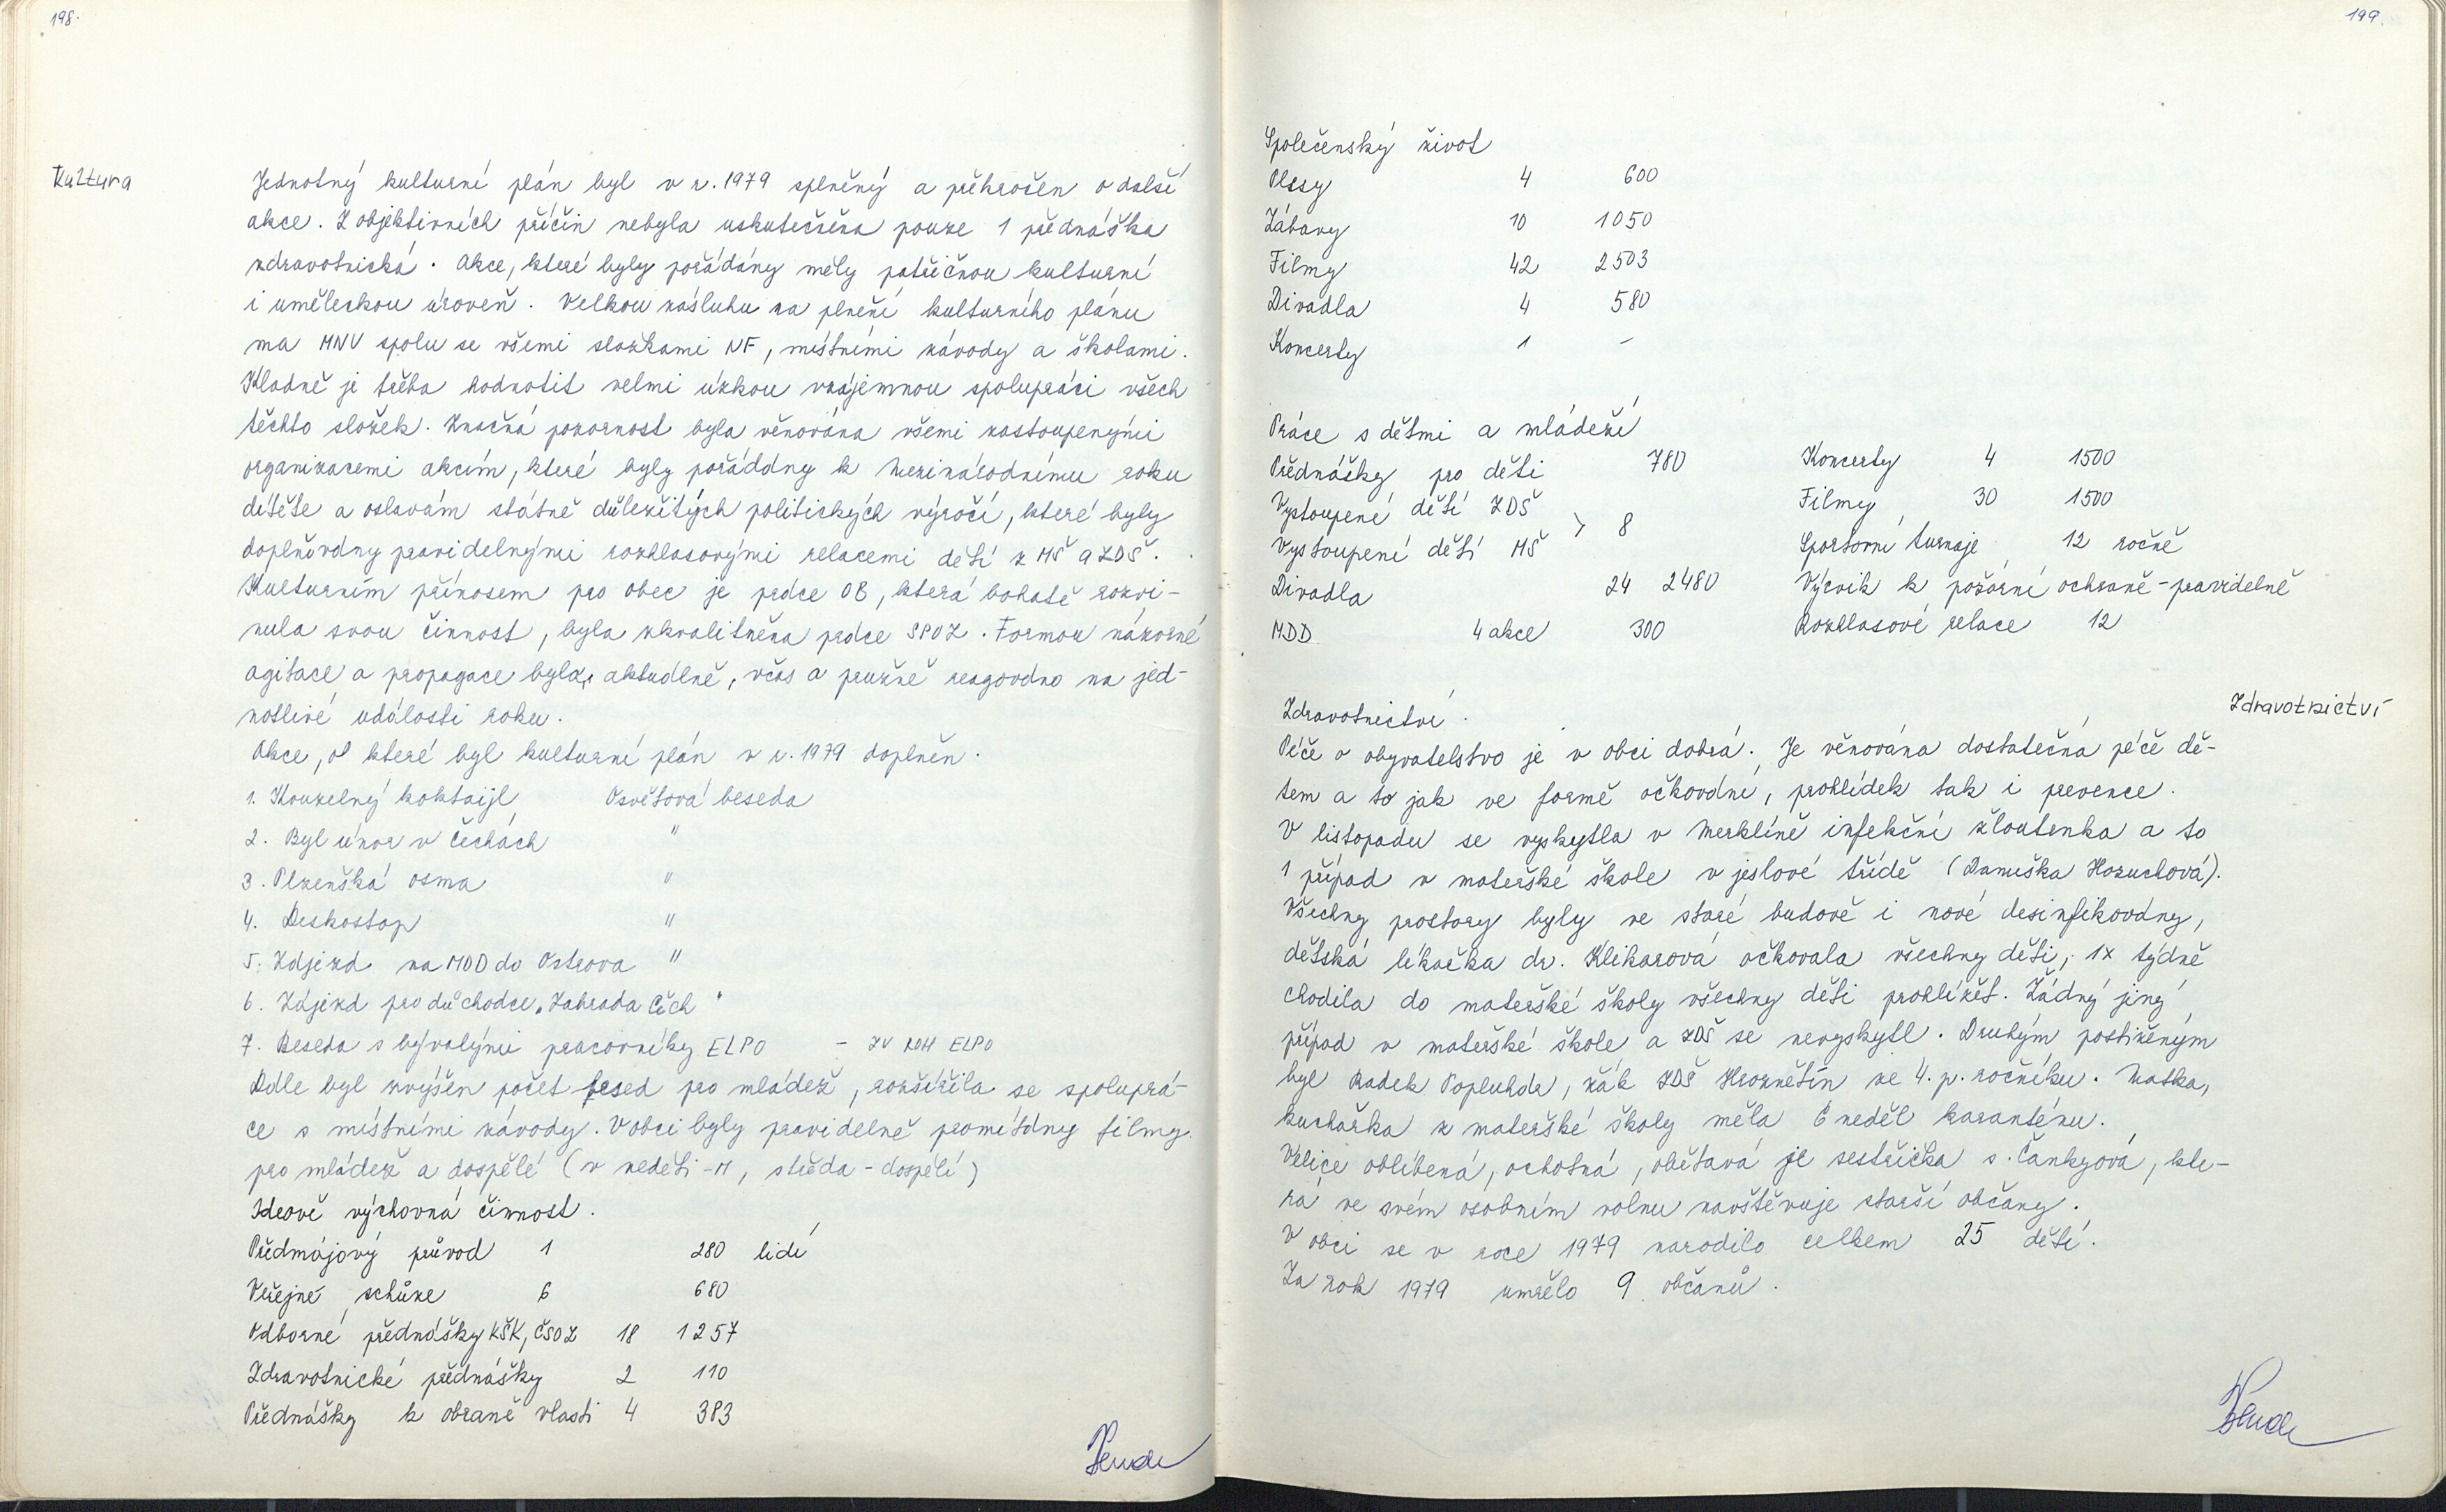 198.
Kultura
Jednotný kulturní plán byl v r. 1979 splněný a překročen o další
akce. Z objektivních příčin nebyla uskutečněna pouze 1 přednáška
zdravotnická. Akce, které byly pořádány měly patřičnou kulturní
i uměleckou úroveň. Velkou zásluhu na plnění kulturního plánu
ma MNV spolu se všemi složkami NF, místními závody a školami.
Kladně je třeba hodnotit velmi úzkou vzájemnou spolupráci všech
těchto složek. Značná pozornost byla věnována všemi zastoupenými
organizacemi akcím, které byly pořádány k Mezinárodnímu roku
dítěte a oslavám státně důležitých politických výročí, které byly
doplňovány pravidelnými rozhlasovými relacemi dětí z MŠ a ZDŠ.
Kulturním přínosem pro obec je práce OB, která bohatě rozvi-
nula svou činnost, byla zkvalitněna práce SPOZ. Formou názorné
agitace a propagace bylo aktuálně, včas a pružně reagováno na jed-
notlivé události roku.
Akce, o které byl kulturní plán v r. 1979 doplněn.
1. Kouzelný koktaijl Osvětová beseda
2. Byl únor v Čechách "
3. Plzeňská osma "
4. Deskostop "
5. Zdjezd na MDD do Ostrova "
6. Zájezd pro důchodce „Zahrada Čech"
7. Beseda s bývalými pracovníky ELPO - ZV ROH ELPO
Dále byl zvýšen počet besed pro mládež, rozšířila se spoluprá-
ce s místními závody. V obci byly pravidelně promítány filmy
pro mládež a dospělé (v neděli - M, středa - dospělí)
Ideově výchovná činnost.
Předmájový průvod 1 280 lidí
Veřejné schůze 6 680
Odborné přednášky KŠK, ČSOZ 18 1257
Zdravotnické přednášky 2 110
Přednášky k obraně vlasti 4 383
199.
Společenský život
Plesy 4 600
Zábavy 10 1050
Filmy 42 2503
Divadla 4 580
Koncerty 1 -
Práce s dětmi a mládeží
Přednášky pro děti 780 Koncerty 4 1500
Vystoupení dětí ZDŠ Filmy 30 1500
> 8
Vystoupení dětí MŠ Sportovní turnaje 12 ročně
Divadla 24 2480 Výcvik k požární ochraně - pravidelně
MDD 4 akce 300 Rozhlasové relace 12
Zdravotnictví.
Zdravotnictví
Péče o obyvatelstvo je v obci dobrá. Je věnována dostatečná péče dě-
tem a to jak ve formě očkování, prohlídek tak i prevence.
V listopadu se vyskytla v Merklíně infekční žloutenka a to
1 případ v mateřské škole v jeslové třídě (Danuška Hozuchová).
Všechny prostory byly ve staré budově i nové desinfikovány,
dětská lékařka dr. Klikarová očkovala všechny děti, 1x týdně
chodila do mateřské školy všechny děti prohlížet. Žádný jiný
případ v mateřské škole a ZDŠ se nevyskytl. Druhým postiženým
byl Radek Popluhár, žák ZDŠ Hroznětín ve 4. p. ročníku. Matka,
kuchařka z mateřské školy měla 6 neděl karanténu.
Velice oblíbená, ochotná, obětavá je sestřička s. Čankyová, kte-
rá ve svém osobním volnu navštěvuje starší občany.
V obci se v roce 1979 narodilo celkem 25 dětí.
Za rok 1979 umřelo 9 občanů.